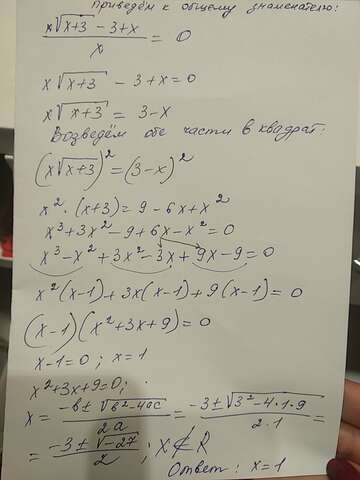 Приведём к общему знаменателю:
x√(x+3) - 3+x / x = 0
x√(x+3) - 3+x = 0
x√(x+3) = 3-x
Возведём обе части в квадрат:
(x√(x+3))² = (3-x)²
x² · (x+3) = 9 - 6x + x²
x³+3x² - 9 + 6x - x² = 0
x³ - x² + 3x² - 3x + 9x - 9 = 0
x²(x-1) + 3x(x-1) + 9(x-1) = 0
(x-1)(x²+3x+9) = 0
x-1=0 ; x=1
x²+3x+9=0;
x = -b ± √(b²-4ac) / 2a = -3 ± √(3²-4·1·9) / 2·1 =
= -3 ± √-27 / 2 ; x ∉ R
Ответ : x=1